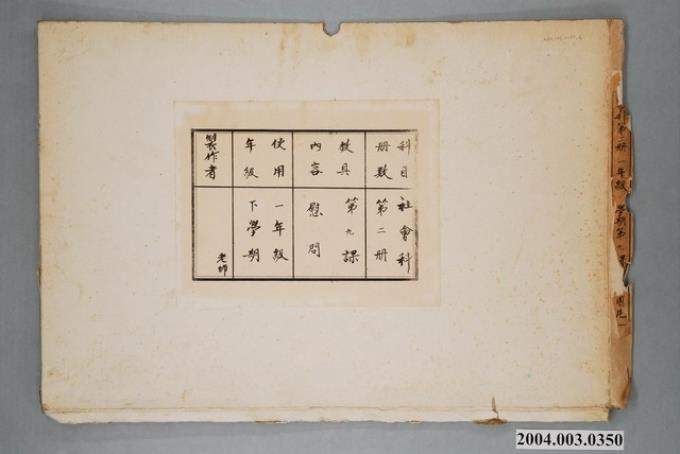 科目 社會科
册数 第二册
教具 第九課
內容 慰問
使用 一年級
年級 下學期
製作者 老師
第二册 一年級 學期第九課
2004.003.0350